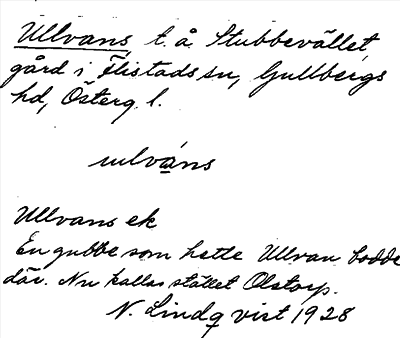 Ullvans t. å. Stubbevället,
gård i Flistads sn, Gullbergs
hd, Österg. l.
ulváns
Ullvans ek
En gubbe som hette Ullvan bodde
där. Nu kallas stället Olstorp.
N. Lindqvist 1928